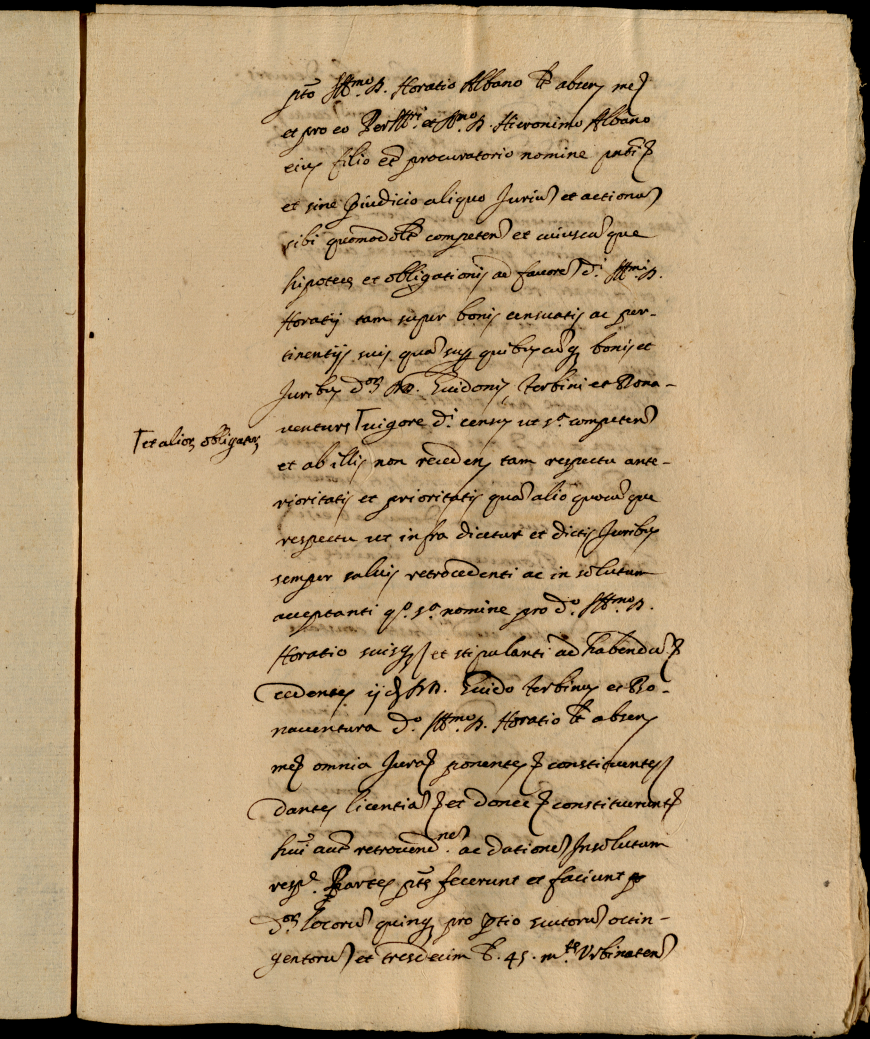 pto Illmo D. Horatio Albano licet absen me
et pro eo Perillri et Admo D. Hieronimo Albano
eius filio et procuratorio nomine pnti
et sine pjudicio aliquo Jurium et actionum
sibi quomodolt competen et cuiuscumque
hipotecę et obligationis ad favorem di Illmi D.
Horatij tam super bonis censuatis ac per-
tinentijs suis quam sup quibuscumq bonis et
Juribus dor DD. Guidonis, Terbini et Bona-
venturę ⌈ vigore di census ut sa competen
⌈ et alior, obligator,
et ab illis non receden, tam respectu ante-
rioritatis et prioritatis quam alio quocumque
respectu ut infra dicetur et dictis Juribus
semper salvis retrocedenti ac in solutum
acceptanti qo. sa. nomine pro do. Illmo D.
Horatio suisq et stipulanti ad habendum
cedentes ijd DD. Guido Terbinus et Bo-
naventura do Illmo D. Horatio licet absen
me omnia Jura ponentes constituentes
dantes licentiam et donec constituerunt
hui aut retrovendnem ac dationem Insolutum
respe. Partes ptę fecerunt et faciunt
dor locorum quinq pro ptio scutorum octin-
gentorum et tresdecim b. 45. mte Urbinaten